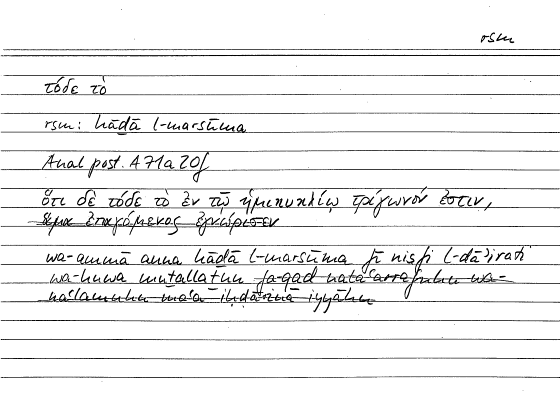 rsm
τόδε τὸ
rsm: hāḏā l-marsūma
Anal post. A 71a20f
ὅτι δὲ τόδε τὸ ἐν τῷ ἡμικυκλίῳ τρίγωνόν ἐστιν,
ἅμα ἐπαγόμενος ἐγνώρισεν
wa-ammā anna hāḏā l-marsūma fī niṣfi l-dāʾirati
wa-huwa muṯallaṯun fa-qad nataʿarrafuhu wa-
naʿlamuhu maʿa iḥḍārinā iyyāhu